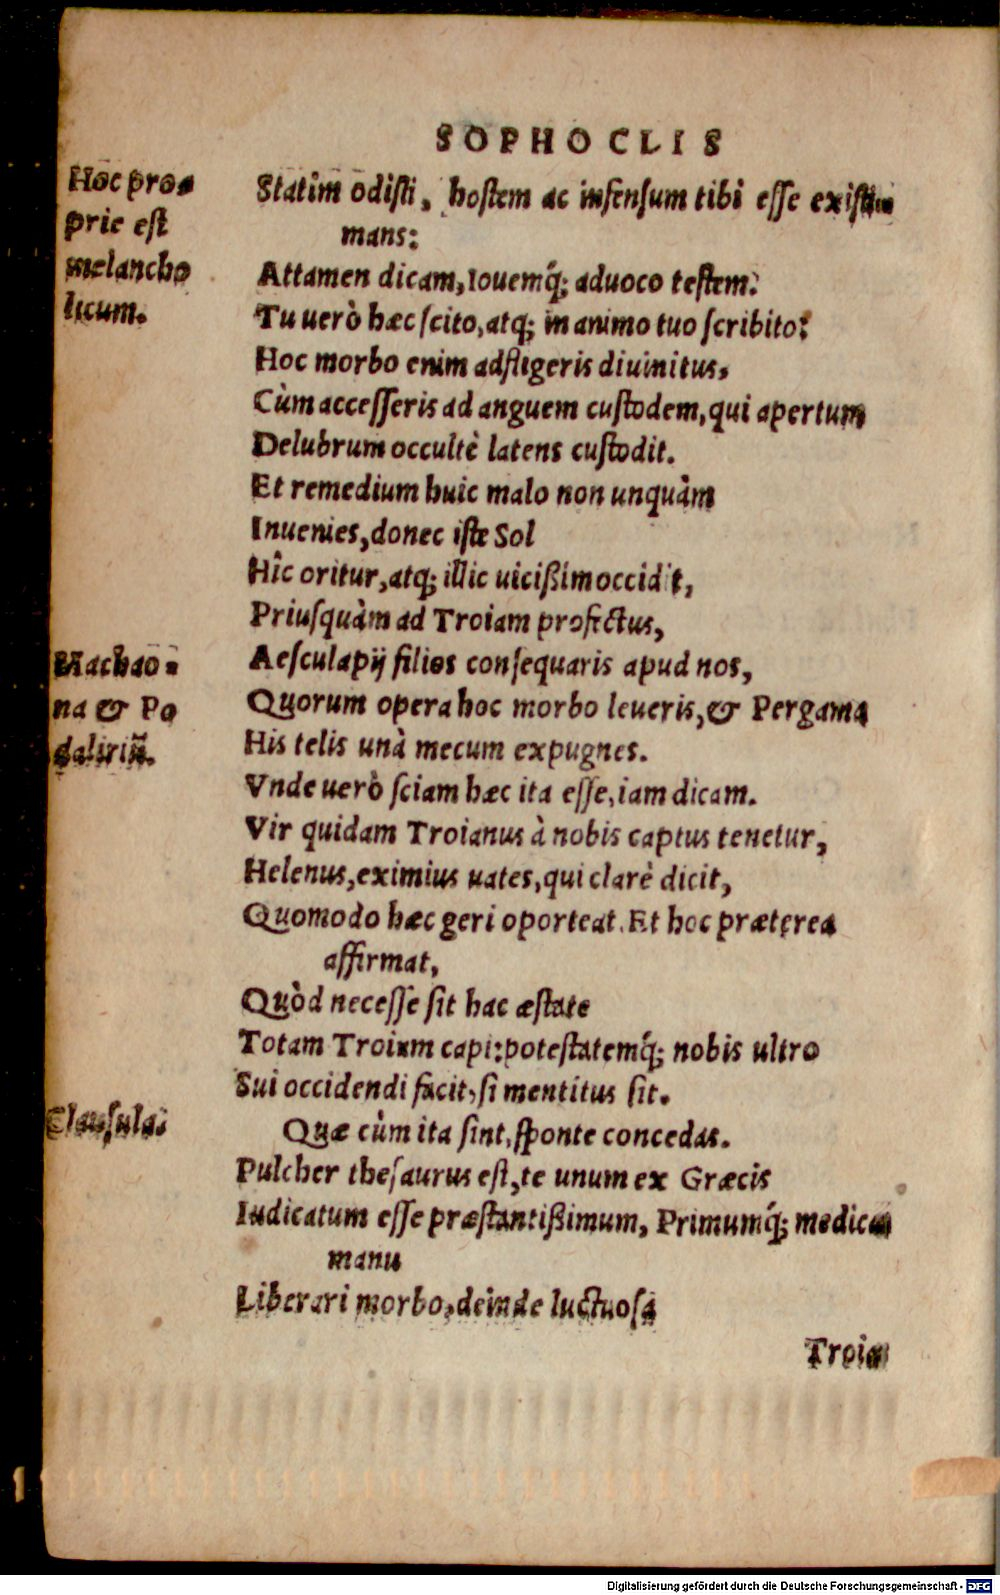 SOPHOCLIS
Hoc pro-
prie est
melancho
licum.
Statim odisti, hostem ac infensum tibi esse existi-
mans:
Attamen dicam, Iouemq́; aduoco testem:
Tu uerò hæc scito, atq; in animo tuo scribito:
Hoc morbo enim adfligeris diuinitus,
Cùm accesseris ad anguem custodem, qui apertum
Delubrum occultè latens custodit.
Et remedium huic malo non unquàm
Inuenies, donec iste Sol
Hîc oritur, atq; illic uicißim occidit,
Priusquàm ad Troiam profectus,
Machao-
na & Po
daliriũ.
Aesculapij filios consequaris apud nos,
Quorum opera hoc morbo leueris, & Pergama
His telis unà mecum expugnes.
Vnde uerò sciam hæc ita esse, iam dicam.
Vir quidam Troianus à nobis captus tenetur,
Helenus, eximius uates, qui clarè dicit,
Quomodo hæc geri oporteat. Et hoc præterea
affirmat,
Quòd necesse sit hac æstate
Totam Troiam capi: potestatemq́; nobis ultro
Sui occidendi facit, si mentitus sit.
Clausula:
Quæ cùm ita sint, sponte concedas.
Pulcher thesaurus est, te unum ex Græcis
Iudicatum esse præstantißimum, Primumq́; medica
manu
Liberari morbo, deinde luctuosa
Troia
Digitalisierung gefördert durch die Deutsche Forschungsgemeinschaft - DFG